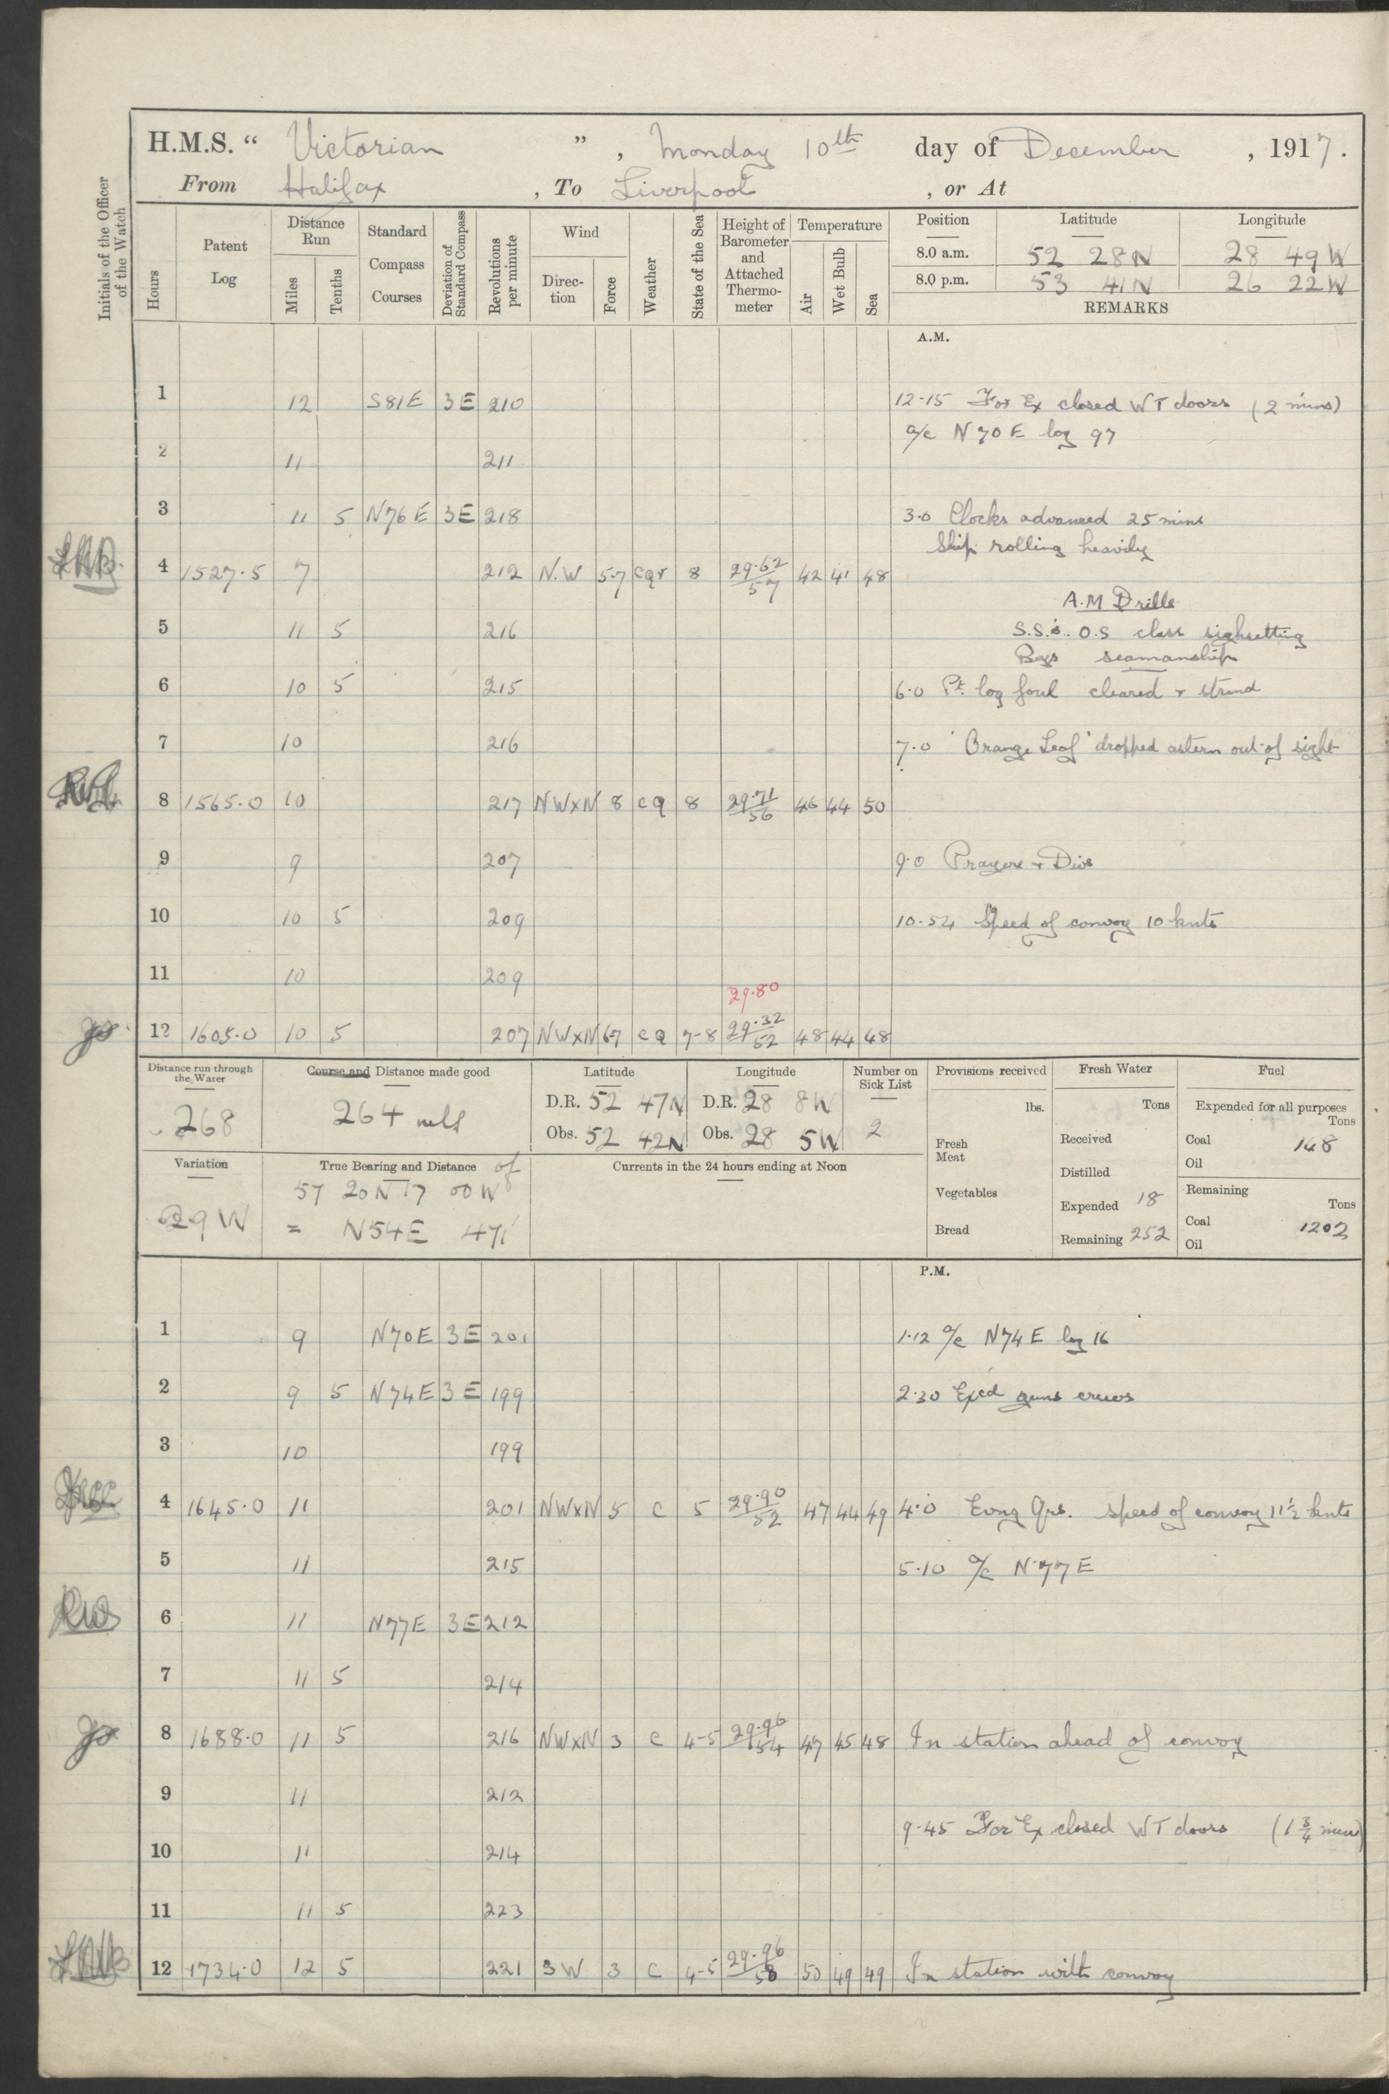 H.M.S. “ Victorian ” , Monday 10th day of December , 1917.
From Halifax , To Liverpool , or At
Initials of the Officer of the Watch
Hours
Patent Log
Distance Run
Miles
Tenths
Standard Compass Courses
Deviation of Standard Compass
Revolutions per minute
Wind
Direction
Force
Weather
State of the Sea
Height of Barometer and Attached Thermometer
Temperature
Air
Wet Bulb
Sea
Position Latitude Longitude
8.0 a.m. 52 28N 28 49W
8.0 p.m. 53 41N 26 22W
REMARKS
A.M.
1 12 S81E 3E 210 12-15 For Ex closed WT doors (2 mins)
a/c N70E log 97
2 11 211
3 11 5 N76E 3E 218 3.0 Clocks advanced 25 mins
Ship rolling heavily
4 1527.5 7 212 N.W 5.7 cqr 8 29.62/57 42 41 48
A.M Drills
5 11 5 216 S.S's. O.S class sightsetting
Boys seamanship
6 10 5 215 6.0 Pt. log foul cleared + strmd
7 10 216 7.0 'Orange Leaf' dropped astern out of sight
8 1565.0 10 217 NWxN 8 cq 8 29.71/56 46 44 50
9 9 207 9.0 Prayers + Divs
10 10 5 209 10-54 Speed of convoy 10 knts
11 10 209
29.80
12 1605.0 10 5 207 NWxN 67 cq 7-8 29.32/52 48 44 48
Distance run through the Water
268
Course and Distance made good
264 mls
Latitude
D.R. 52 47N
Obs. 52 42N
Longitude
D.R. 28 8W
Obs. 28 5W
Number on Sick List
2
Provisions received
lbs.
Fresh Meat
Vegetables
Bread
Fresh Water
Tons
Received
Distilled
Expended 18
Remaining 252
Fuel
Expended for all purposes
Tons
Coal 148
Oil
Remaining
Tons
Coal 1202
Oil
Variation
29W
True Bearing and Distance of
57 20N 17 00W
= N54E 471'
Currents in the 24 hours ending at Noon
P.M.
1 9 N70E 3E 201 1.12 a/c N74E log 16
2 9 5 N74E 3E 199 2.30 Excd guns crews
3 10 199
4 1645.0 11 201 NWxN 5 c 5 29.90/52 47 44 49 4.0 Evng Qrs. speed of convoy 11½ knts
5 11 215 5.10 a/c N77E
6 11 N77E 3E 212
7 11 5 214
8 1688.0 11 5 216 NWxN 3 c 4-5 29.96/54 47 45 48 In station ahead of convoy
9 11 212
9.45 For Ex closed WT doors (1¾ mins)
10 11 214
11 11 5 223
12 1734.0 12 5 221 SW 3 c 4-5 29.96/58 50 49 49 In station with convoy